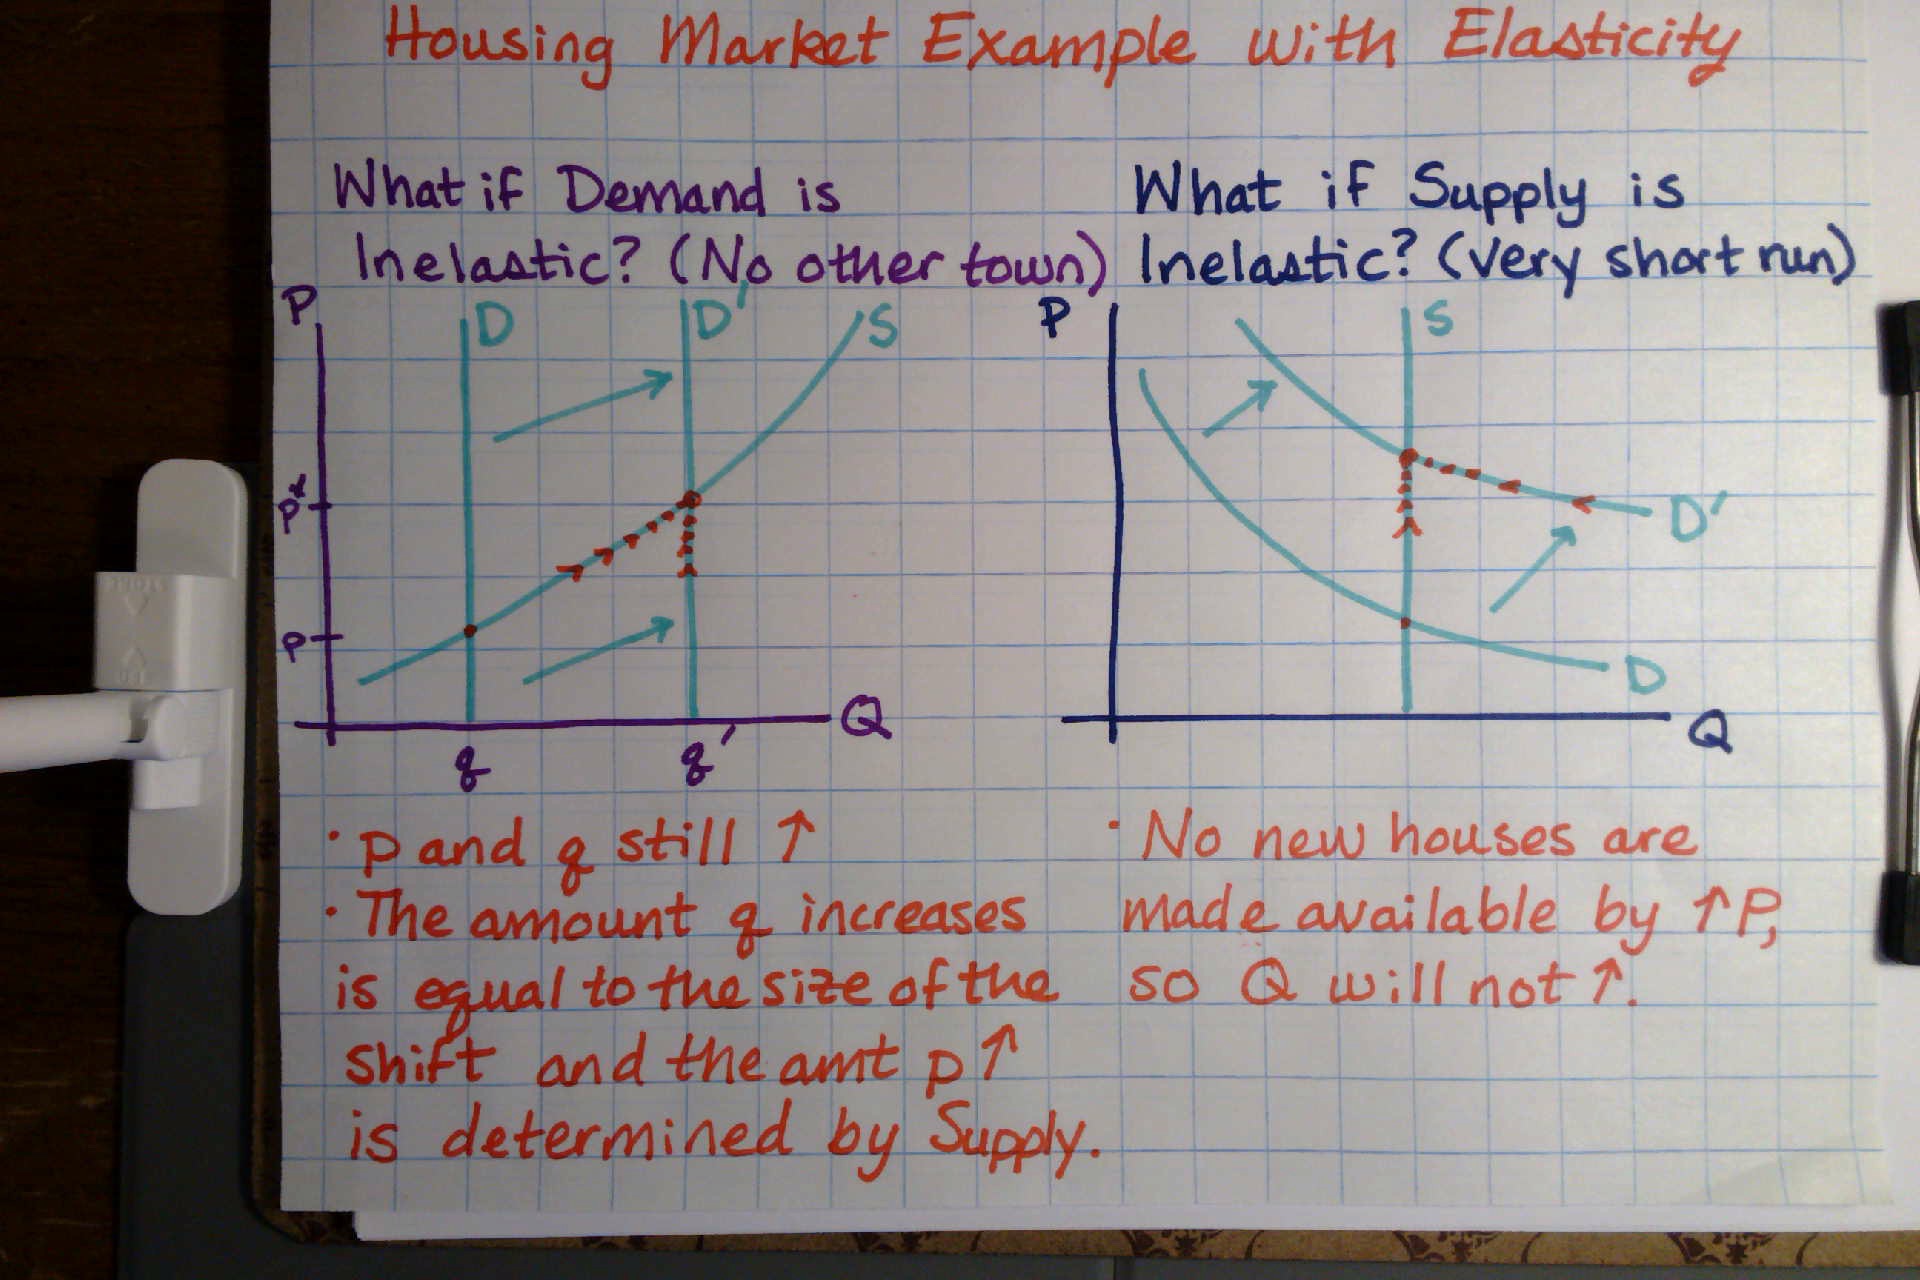 Housing Market Example with Elasticity
What if Demand is
Inelastic? (No other town)
P
D
D'
S
P*
P
Q
q
q'
• p and q still ↑
• The amount q increases
is equal to the size of the
shift and the amt p ↑
is determined by Supply.
What if Supply is
Inelastic? (very short run)
P
S
D'
D
Q
• No new houses are
made available by ↑ P,
so Q will not ↑.